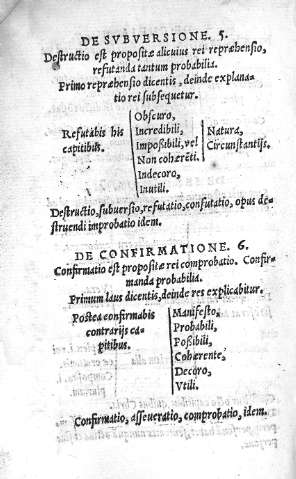 DE SVBVERSIONE. 5.
Destructio est propositæ alicuius rei repræhensio,
refutanda tantum probabilia.
Primo repræhensio dicentis, deinde explana-
tio rei subsequetur.
Obscuro,
Refutabis his Incredibili, Natura,
capitibus. Impoßibili, vel Circunstantijs.
Non cohærēti.
Indecoro,
Inutili.
Destructio, subuersio, refutatio, confutatio, opus de-
struendi improbatio idem.
DE CONFIRMATIONE. 6.
Confirmatio est propositæ rei comprobatio. Confir-
manda probabilia.
Primum laus dicentis, deinde res explicabitur.
Postea confirmabis Manifesto,
contrarijs ca- Probabili,
pitibus. Poßibili,
Cohærente,
Decoro,
Vtili.
Confirmatio, asseueratio, comprobatio, idem.